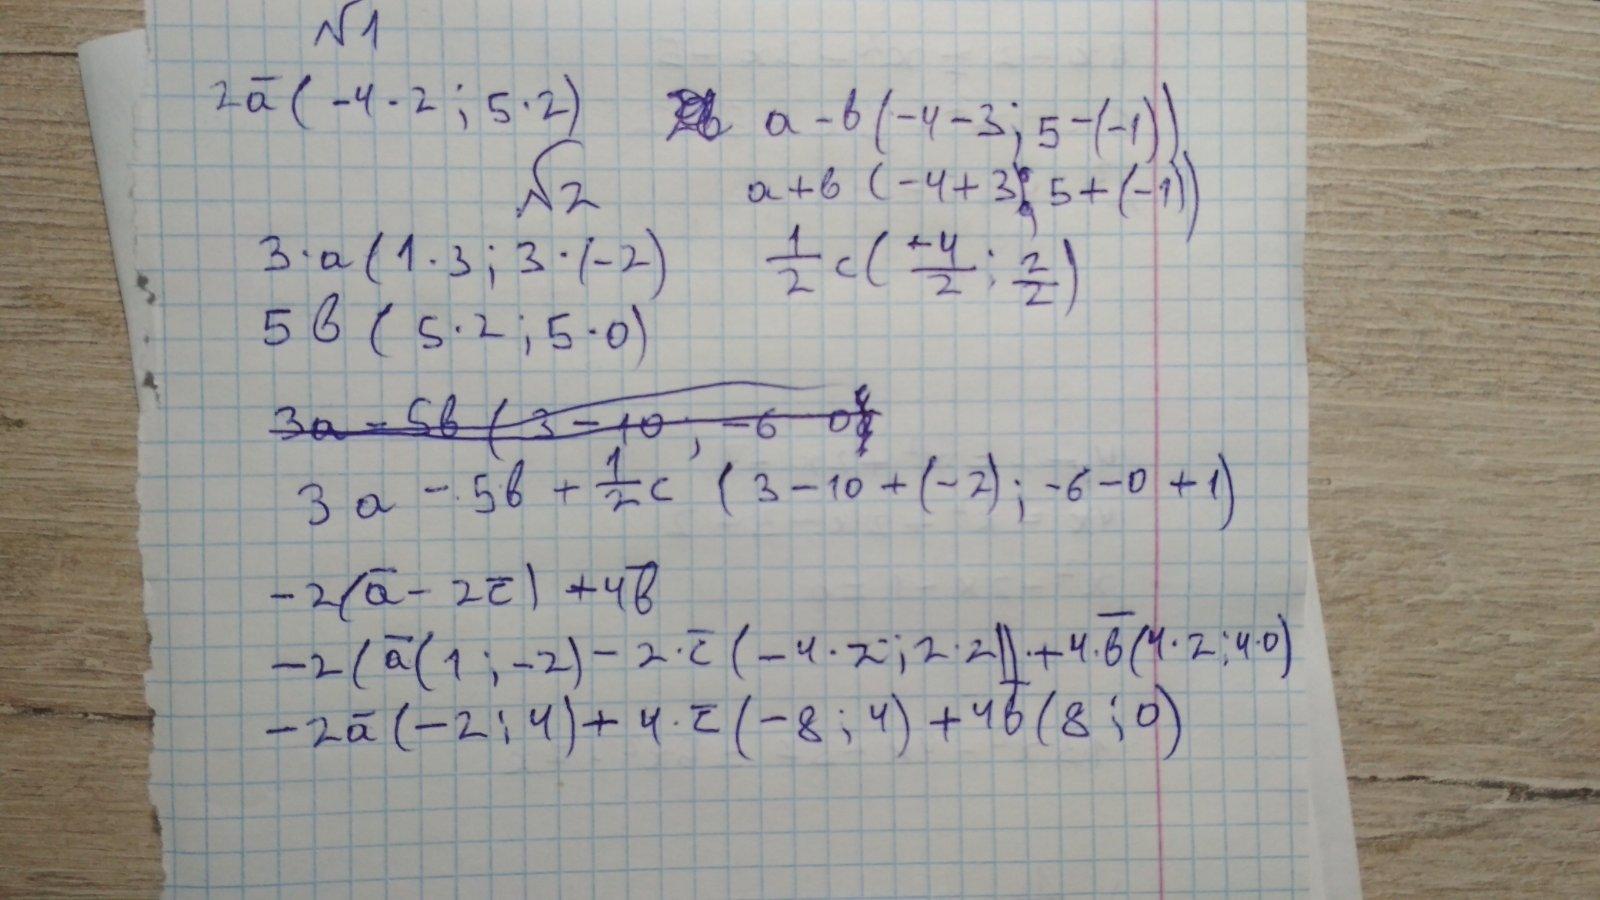 №1
2a̅ (-4·2; 5·2) a-b (-4-3; 5-(-1))
№2 a+b (-4+3; 5+(-1))
3·a (1·3; 3·(-2) 1/2 c (-4/2; 2/2)
5b (5·2; 5·0)
3a - 5b (3-10; -6 0
3a - 5b + 1/2 c (3-10+(-2); -6-0+1)
-2(a̅ - 2c̅) + 4b̅
-2(a̅(1; -2) - 2·c̅ (-4·2; 2·2)) + 4·b̅ (4·2; 4·0)
-2a̅ (-2; 4) + 4·c̅ (-8; 4) + 4b̅ (8; 0)